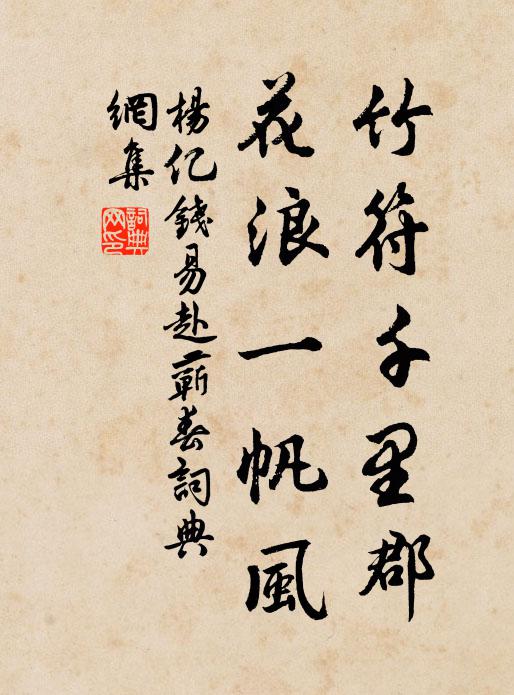 竹符千里郡
花浪一帆風
楊亿錢易赴蘄春詞典
網集
詞典
网印